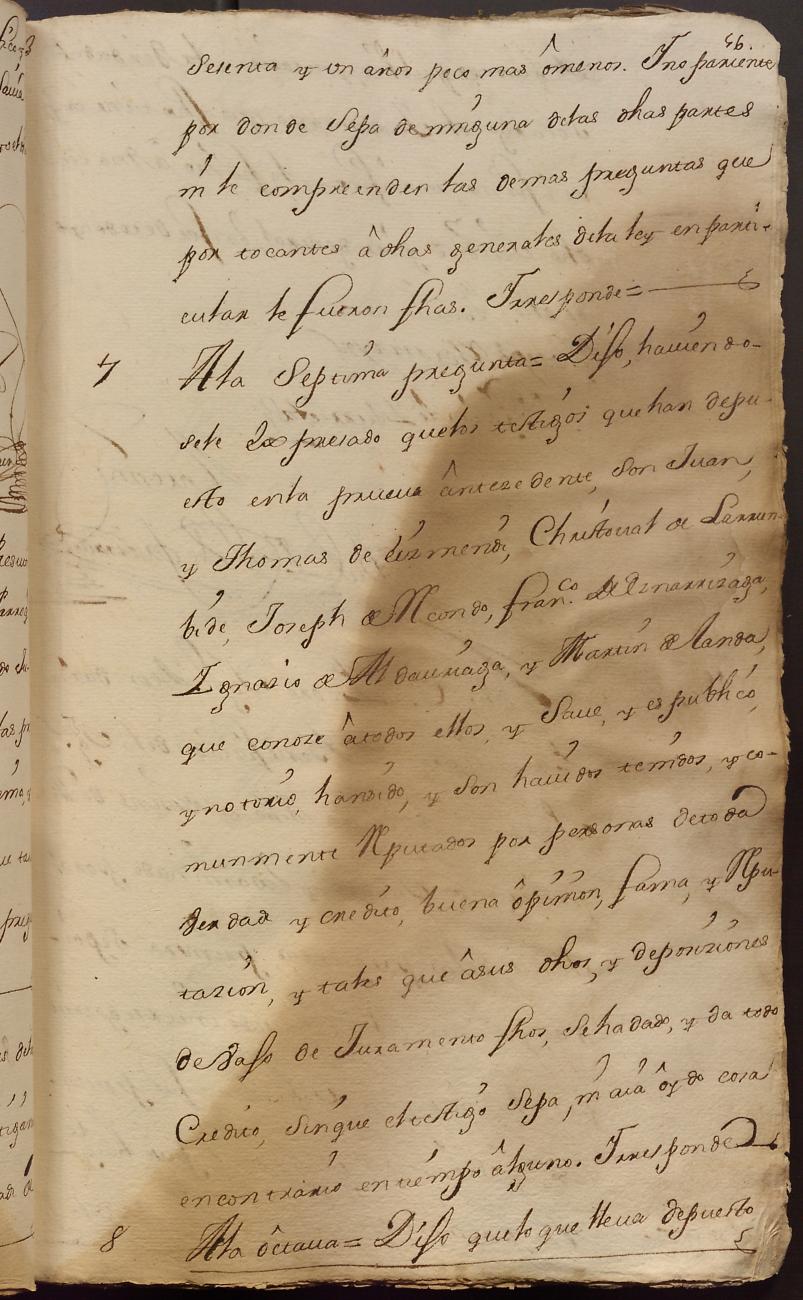 46.
Sesenta y un años poco mas ômenos. Yno pariente
por donde Sepa de ninguna delas dhas partes
ni le comprenden las demas preguntas que
por tocantes â dhas generales dela ley en parti-
cular le fueron fhas. Yrresponde=
7 Ala Septima pregunta= Dijo, haviendo-
sele expresado quelos testigos que han depu-
esto enla prueva ântezedente, Son Juan,
y Thomas de Eizmendi, Christoval de Larrun-
bide, Joseph de Elcondo, fran.co de Eznarrizaga,
Ygnazio de Aldaviaga, y Martin de landa,
que conoze âtodos ellos, y Save, y es publico,
ynotorio, hansido, y Son havidos tenidos, y co-
munmente Reputados por personas detoda
Verdad y credito, buena ôpinion, fama, y Repu-
tazion, y tales que âsus dhos, y deposiziones
de Vajo de Juramento fhos, Sehadado, y da todo
Credito, sinque eltestigo Sepa, ni aia ôydo cosa
encontrario entiempo âlguno. Yrresponde
8 Ala ôctava= Dijo quelo que lleva depuesto